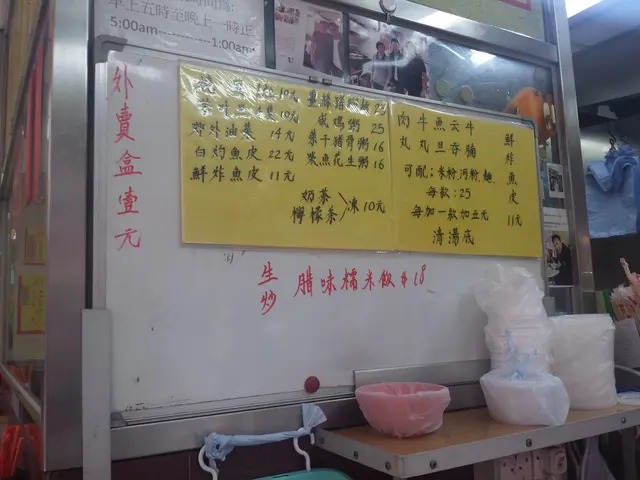 早上五時至晚上一時正
5:00am----------1:00am
外賣盒壹元
10元
茶叶旦 10元
炸油 14元
白灼魚皮 22元
鮮炸魚皮 11元
25
咸鸡粥 25
菜干猪骨粥 16
柴魚花生粥 16
奶茶
檸檬茶
凍10元
肉丸
牛丸
魚旦
云吞
牛腩
可配；米粉.河粉.麵
每款：25
每加一款加五元
清湯底
鮮炸魚皮
11元
生炒 腊味糯米飯 $18